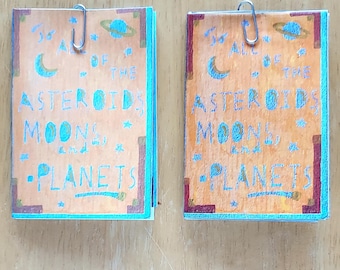 To ALL
OF
THE
ASTEROIDS
MOONS,
and
PLANETS
To ALL
OF
THE
ASTEROIDS
MOONS,
and
PLANETS